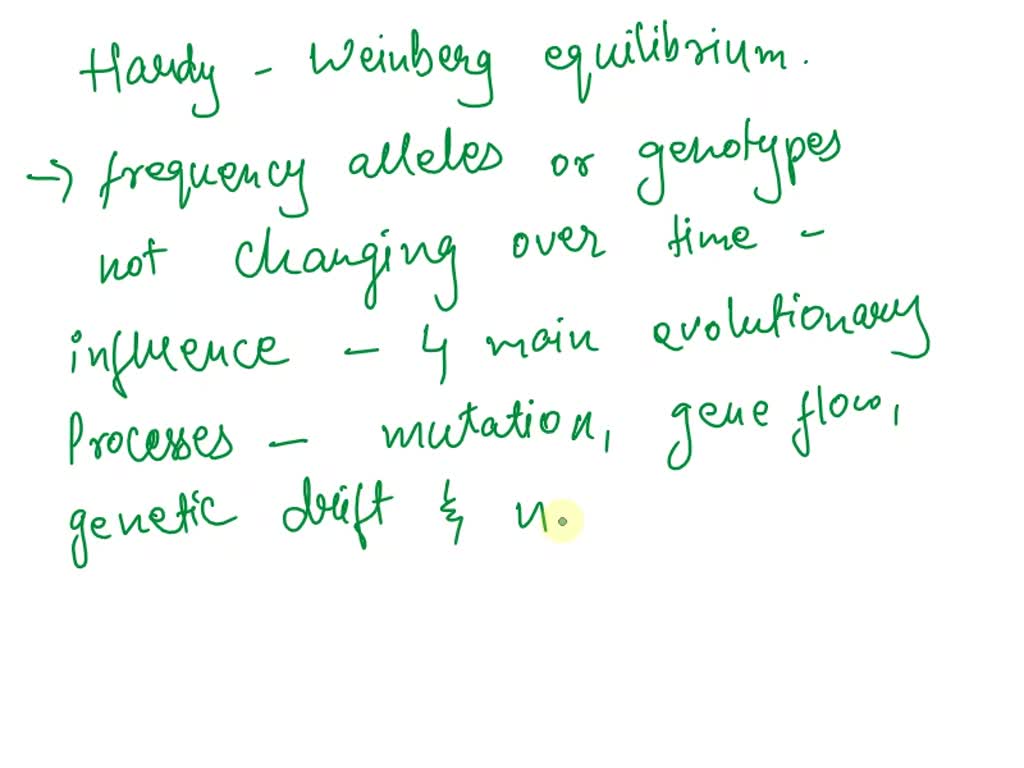 Hardy - Weinberg equilibrium.
→ frequency alleles or genotypes
not changing over time -
influence - 4 main evolutionary
Processes - mutation, gene flow,
genetic drift & n